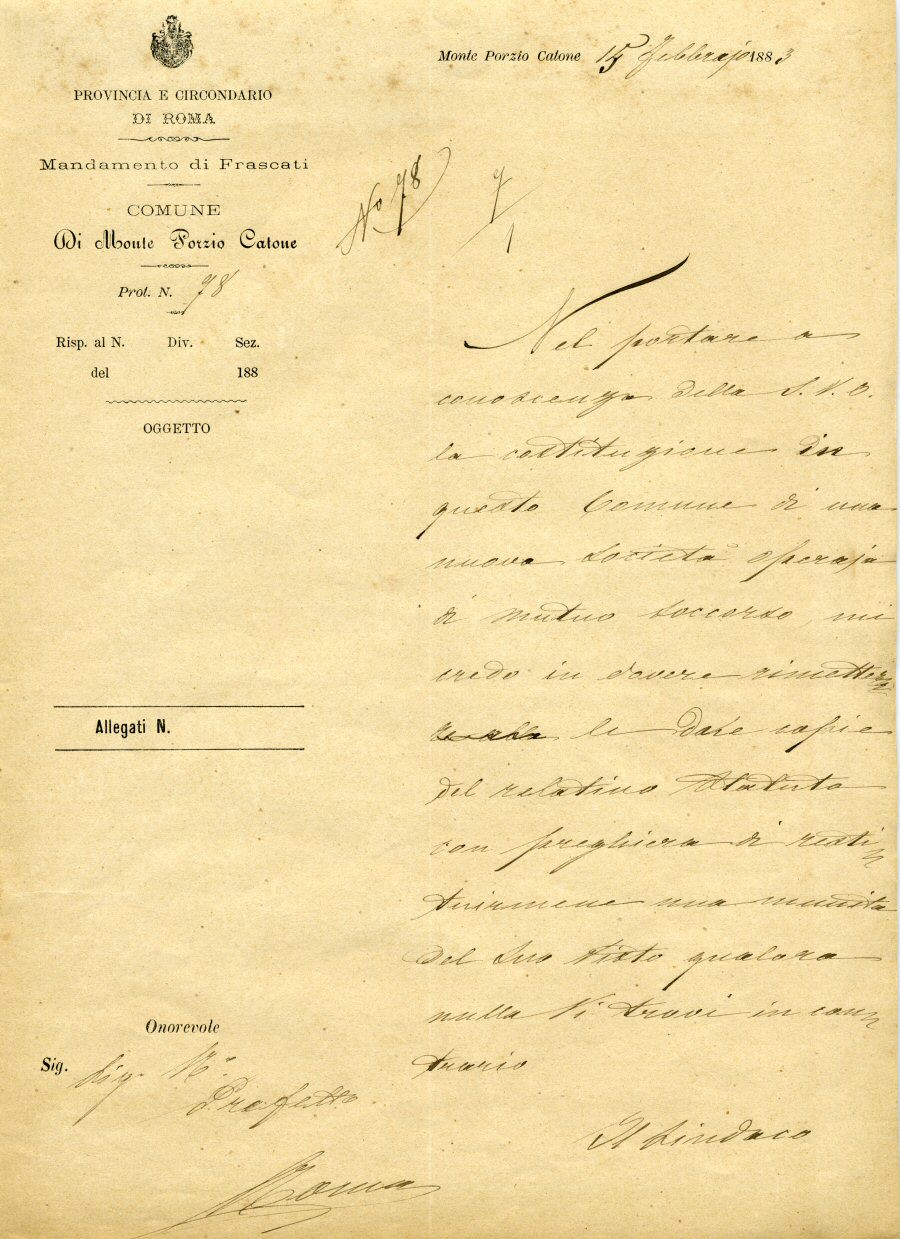 Monte Porzio Catone 15 Febbrajo 1883
PROVINCIA E CIRCONDARIO
DI ROMA
Mandamento di Frascati
COMUNE
Di Monte Porzio Catone
Prot. N. 78
Risp. al N. Div. Sez.
del 188
OGGETTO
Allegati N.
Onorevole
Sig. Sig.
Prefetto
Roma
No 78
7
1
Nel portare a
conoscenza della S. V. O.
la costituzione in
questo Comune di una
nuova Società operaja
di mutuo soccorso, mi
credo in dovere rimetter
le due copie
del relativo Statuto
con preghiera di resti
tuirmene una munita
del Suo Visto qualora
nulla Vi trovi in con
trario
Il Sindaco